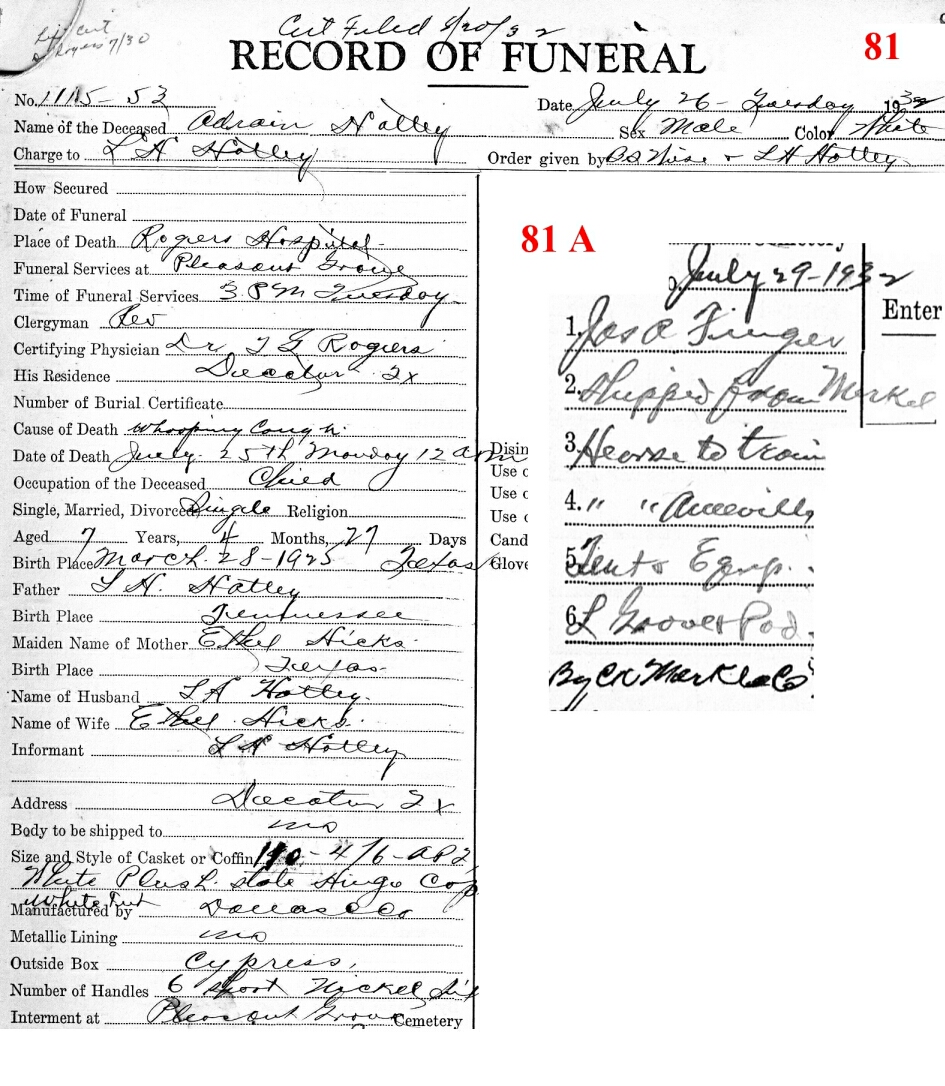 Cert Filed 8/20/32
Rogers 7/30
RECORD OF FUNERAL
81
No. 1115-53 Date July 26- Tuesday 1932
Name of the Deceased Adrain Hatley Sex Male Color White
Charge to L H Hatley Order given by L H Hatley
How Secured
Date of Funeral
Place of Death Rogers Hospital
Funeral Services at Pleasant Grove
Time of Funeral Services 3 P M Tuesday
Clergyman Rev
Certifying Physician Dr. T G Rogers
His Residence Decatur Tx
Number of Burial Certificate
Cause of Death Whooping Cough
Date of Death July 25th Monday 12
Occupation of the Deceased Child
Single, Married, Divorced Single Religion
Aged 7 Years, 4 Months, 27 Days
Birth Place March 28-1925 Texas
Father L H. Hatley
Birth Place Tennessee
Maiden Name of Mother Ethel Hicks
Birth Place Texas
Name of Husband L H Hatley
Name of Wife Ethel Hicks
Informant L H Hatley
Address Decatur Tx
Body to be shipped to no
Size and Style of Casket or Coffin 190-4/6-
White Plush. state Hinge Cap
White
Manufactured by Dallas C Co
Metallic Lining no
Outside Box Cypress,
Number of Handles 6 short Nickel
Interment at Pleasant Grove Cemetery
Disin
Use o
Use o
Use o
Cand
Glove
81 A
July 29-1932
Enter
1. Jas a Finger
2. Shipped from Merkel
3. Hearse to train
4. " "
5. Tent & Equip.
6. L Grover Pod.
By